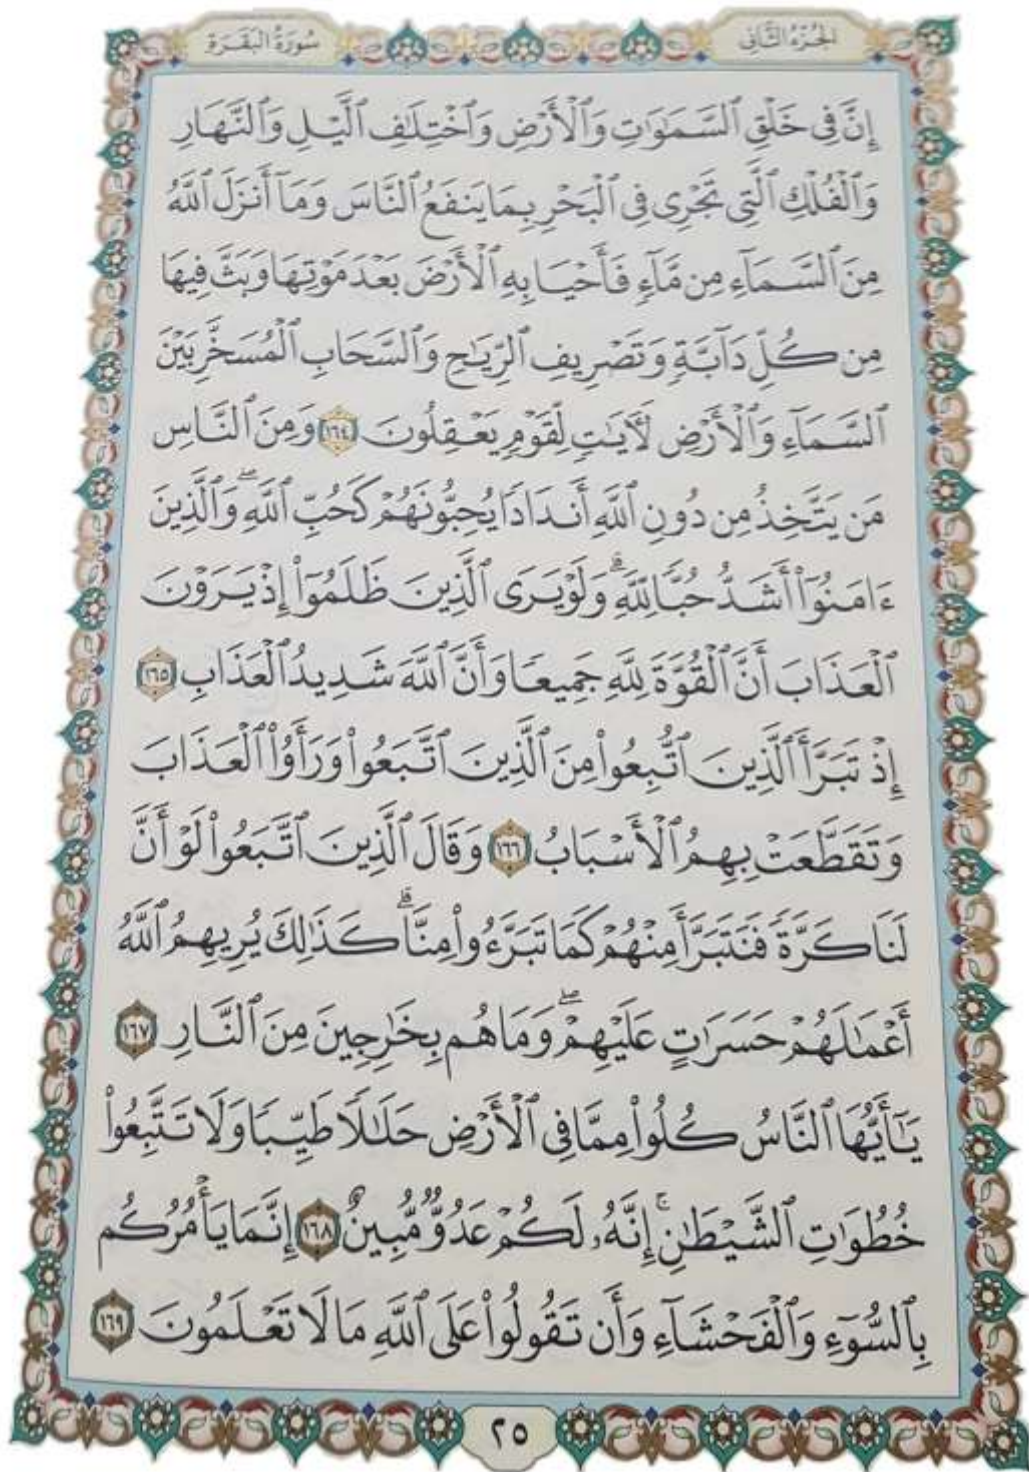 الجزء الثاني
سورة البقرة
إِنَّ فِى خَلْقِ ٱلسَّمَـٰوَٰتِ وَٱلْأَرْضِ وَٱخْتِلَـٰفِ ٱلَّيْلِ وَٱلنَّهَارِ
وَٱلْفُلْكِ ٱلَّتِى تَجْرِى فِى ٱلْبَحْرِ بِمَا يَنفَعُ ٱلنَّاسَ وَمَآ أَنزَلَ ٱللَّهُ
مِنَ ٱلسَّمَآءِ مِن مَّآءٍ فَأَحْيَا بِهِ ٱلْأَرْضَ بَعْدَ مَوْتِهَا وَبَثَّ فِيهَا
مِن كُلِّ دَآبَّةٍ وَتَصْرِيفِ ٱلرِّيَـٰحِ وَٱلسَّحَابِ ٱلْمُسَخَّرِ بَيْنَ
ٱلسَّمَآءِ وَٱلْأَرْضِ لَـَٔايَـٰتٍ لِّقَوْمٍ يَعْقِلُونَ ١٦٤ وَمِنَ ٱلنَّاسِ
مَن يَتَّخِذُ مِن دُونِ ٱللَّهِ أَندَادًا يُحِبُّونَهُمْ كَحُبِّ ٱللَّهِ ۖ وَٱلَّذِينَ
ءَامَنُوٓا۟ أَشَدُّ حُبًّا لِّلَّهِ ۗ وَلَوْ يَرَى ٱلَّذِينَ ظَلَمُوٓا۟ إِذْ يَرَوْنَ
ٱلْعَذَابَ أَنَّ ٱلْقُوَّةَ لِلَّهِ جَمِيعًا وَأَنَّ ٱللَّهَ شَدِيدُ ٱلْعَذَابِ ١٦٥
إِذْ تَبَرَّأَ ٱلَّذِينَ ٱتُّبِعُوا۟ مِنَ ٱلَّذِينَ ٱتَّبَعُوا۟ وَرَأَوُا۟ ٱلْعَذَابَ
وَتَقَطَّعَتْ بِهِمُ ٱلْأَسْبَابُ ١٦٦ وَقَالَ ٱلَّذِينَ ٱتَّبَعُوا۟ لَوْ أَنَّ
لَنَا كَرَّةً فَنَتَبَرَّأَ مِنْهُمْ كَمَا تَبَرَّءُوا۟ مِنَّا ۗ كَذَٰلِكَ يُرِيهِمُ ٱللَّهُ
أَعْمَـٰلَهُمْ حَسَرَٰتٍ عَلَيْهِمْ ۖ وَمَا هُم بِخَـٰرِجِينَ مِنَ ٱلنَّارِ ١٦٧
يَـٰٓأَيُّهَا ٱلنَّاسُ كُلُوا۟ مِمَّا فِى ٱلْأَرْضِ حَلَـٰلًا طَيِّبًا وَلَا تَتَّبِعُوا۟
خُطُوَٰتِ ٱلشَّيْطَـٰنِ ۚ إِنَّهُۥ لَكُمْ عَدُوٌّ مُّبِينٌ ١٦٨ إِنَّمَا يَأْمُرُكُم
بِٱلسُّوٓءِ وَٱلْفَحْشَآءِ وَأَن تَقُولُوا۟ عَلَى ٱللَّهِ مَا لَا تَعْلَمُونَ ١٦٩
٢٥